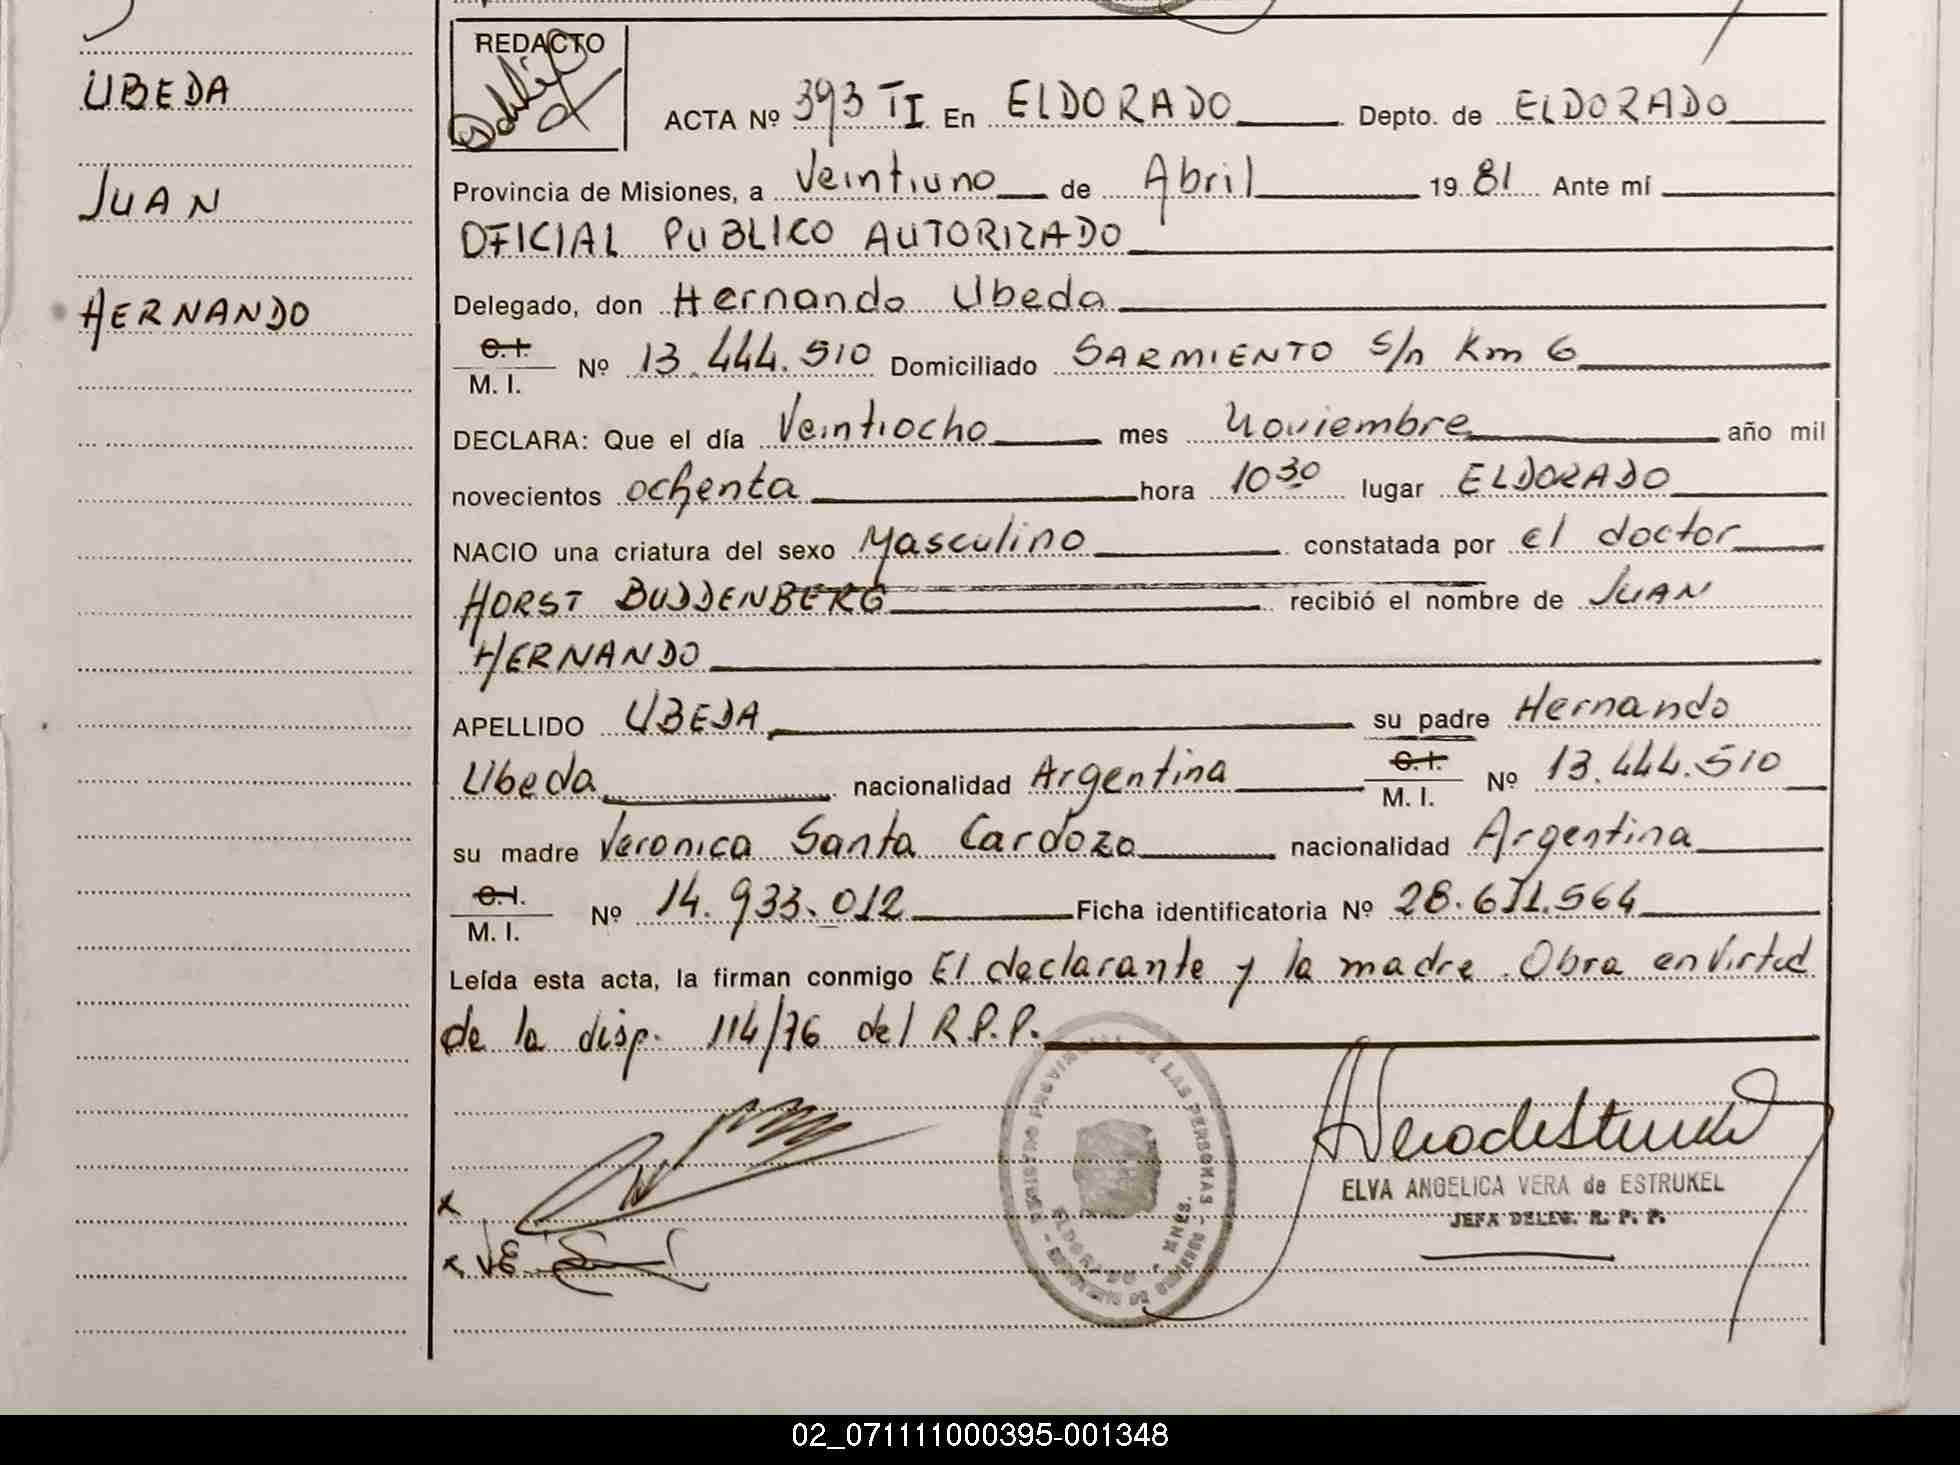 UBEDA
JUAN
HERNANDO
REDACTO
ACTA Nº 393 TI En ELDORADO Depto. de ELDORADO
Provincia de Misiones, a Veintiuno de Abril 19 81 Ante mí
OFICIAL PUBLICO AUTORIZADO
Delegado, don Hernando Ubeda
C.I.
M. I. Nº 13.444.510 Domiciliado SARMIENTO S/n Km 6
DECLARA: Que el día Veintiocho mes Noviembre año mil
novecientos ochenta hora 10 30 lugar ELDORADO
NACIO una criatura del sexo Masculino constatada por el doctor
HORST BUDDENBERG recibió el nombre de JUAN
HERNANDO
APELLIDO UBEDA su padre Hernando
Ubeda nacionalidad Argentina C.I. M. I. Nº 13.444.510
su madre Veronica Santa Cardozo nacionalidad Argentina
C.I.
M. I. Nº 14.933.012 Ficha identificatoria Nº 28.611.564
Leída esta acta, la firman conmigo El declarante y la madre. Obra en Virtud
de la disp. 114/76 del R.P.P.
ELVA ANGELICA VERA de ESTRUKEL
JEFA DELEG. R. P. P.
02_071111000395-001348